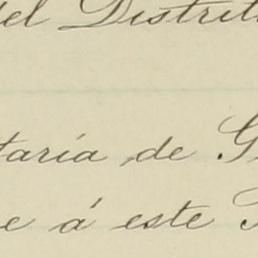 del Distrit
taría de G
e á este